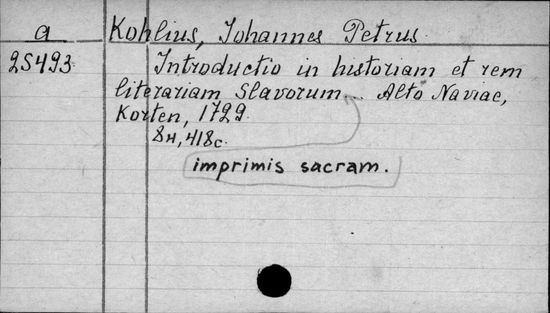 a Kohlius, Johannes Petrus
25493 Introductio in historiam et rem
literariam Slavorum... Alto Naviae,
Korten, 1729
8н, 418с.
imprimis sacram.